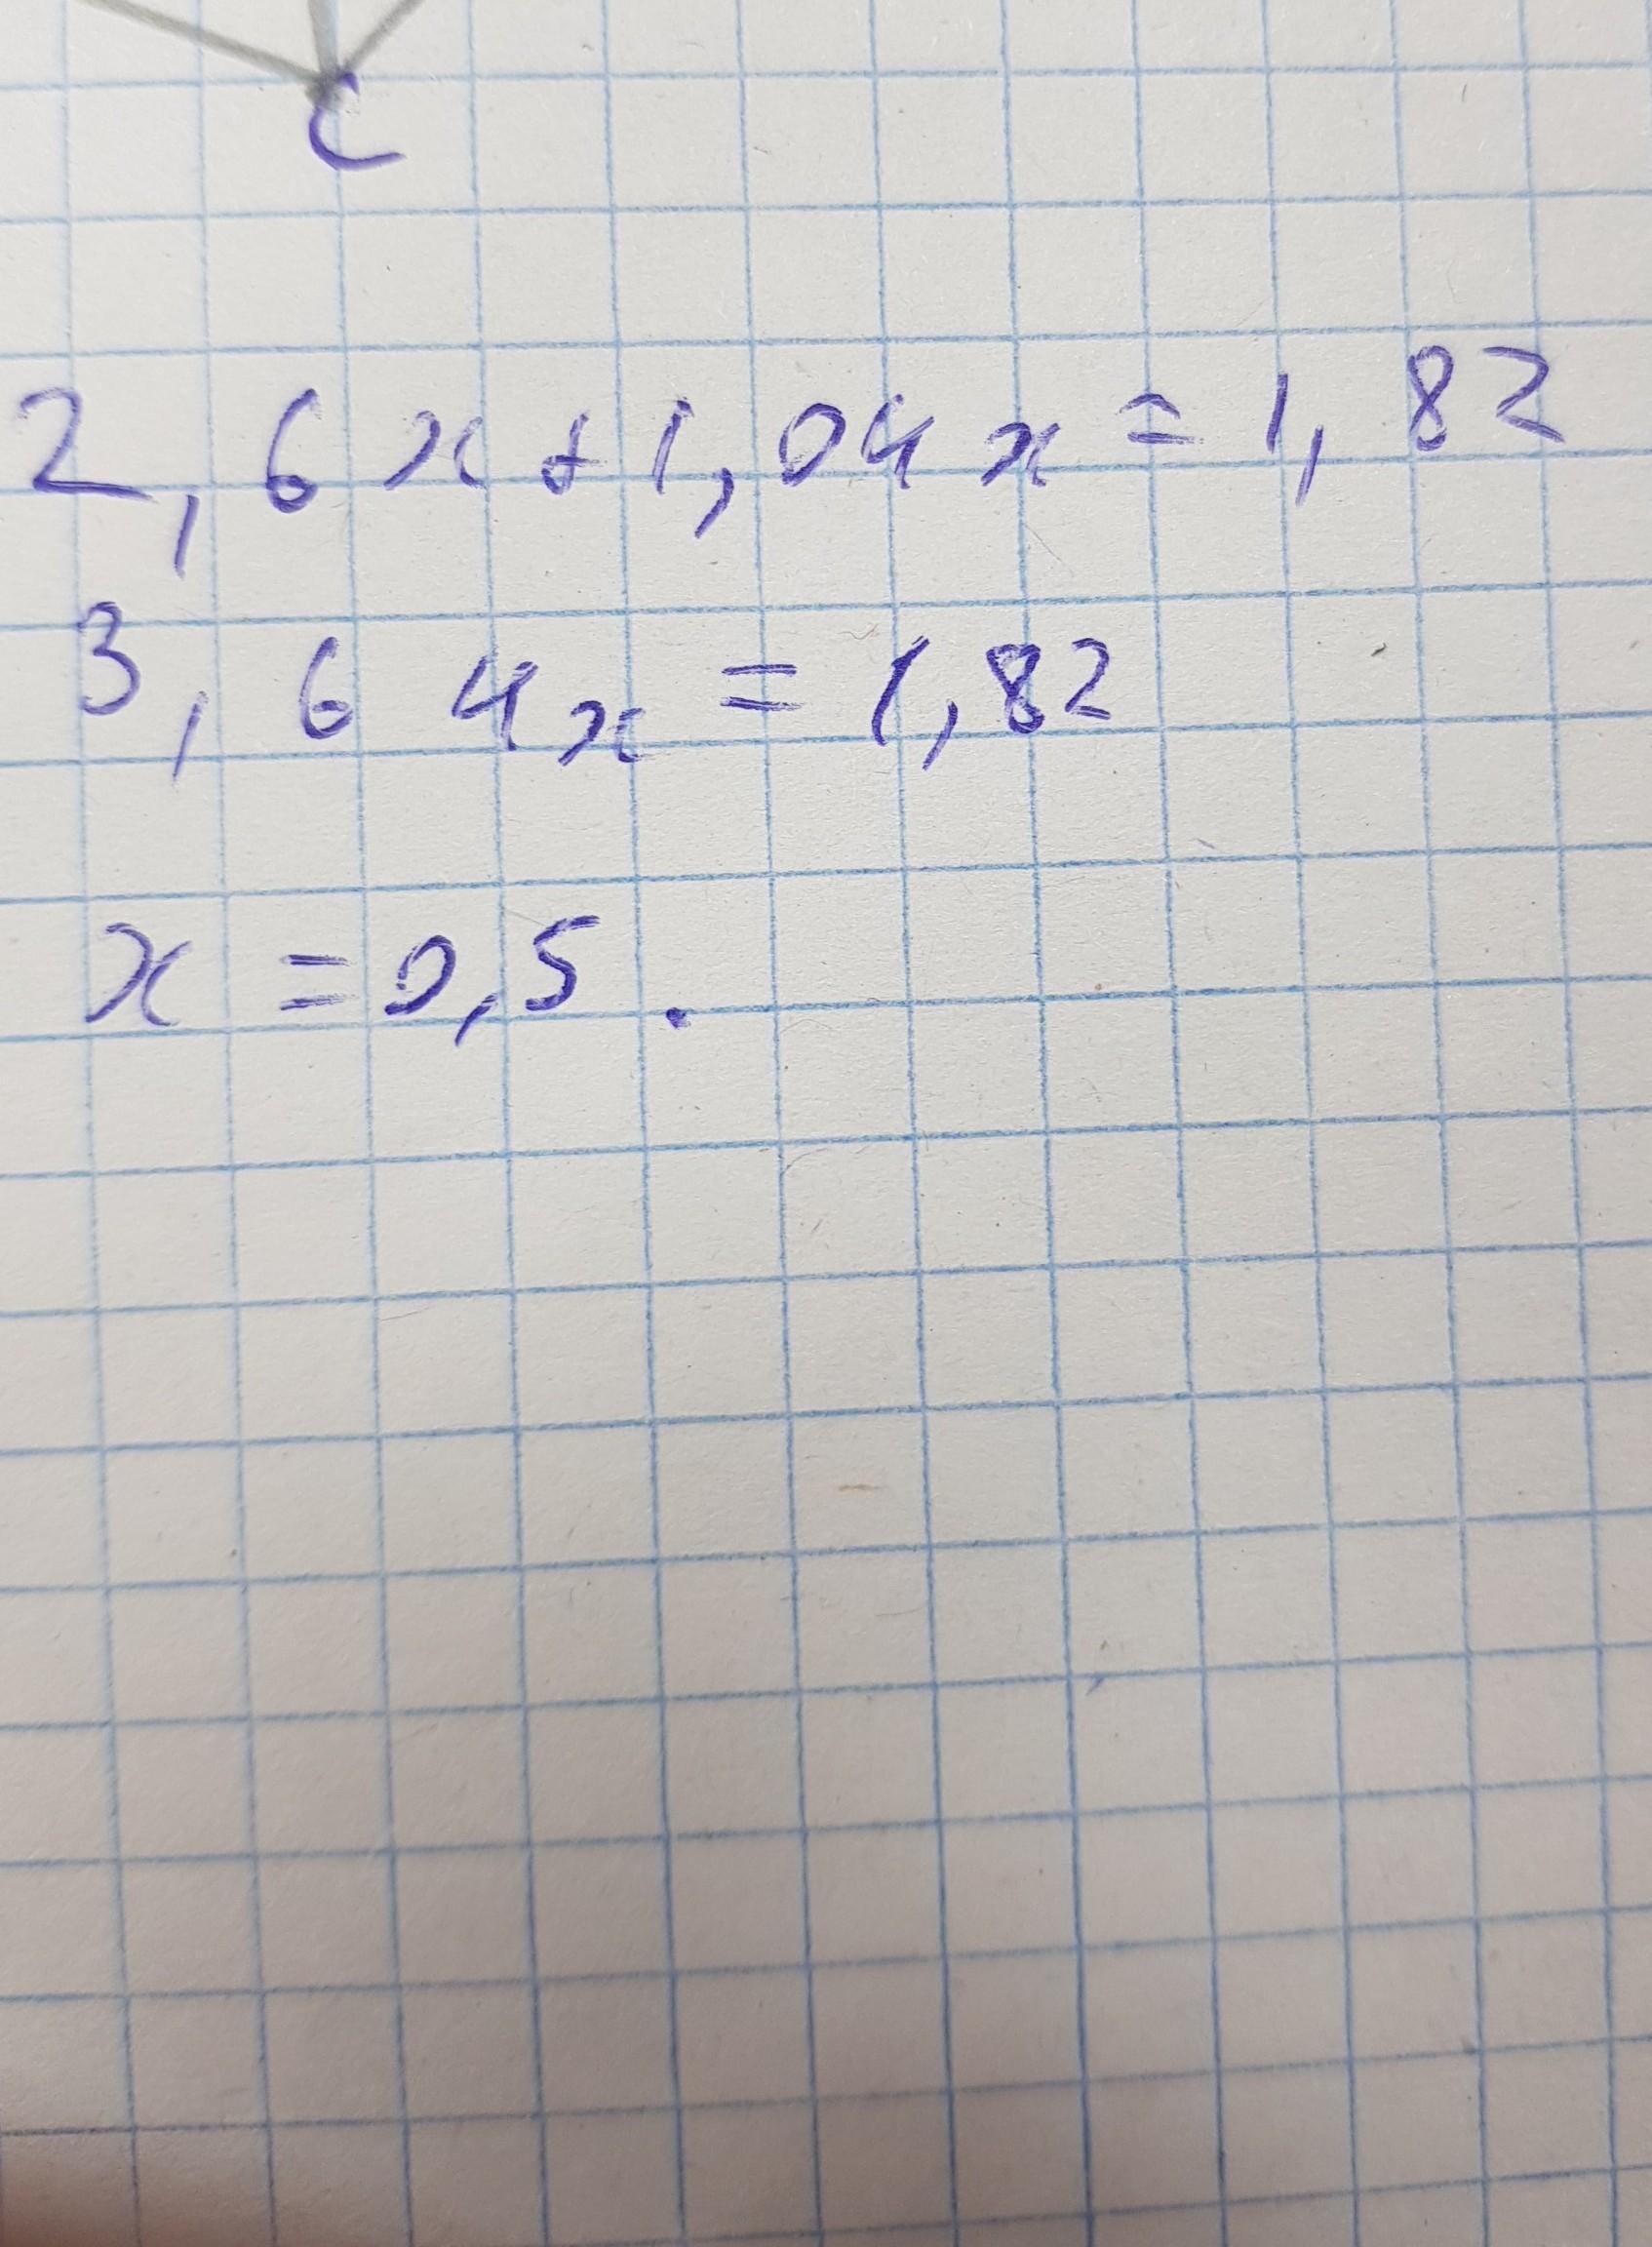 C
2,6x+1,04x=1,82
3,64x=1,82
x=0,5.